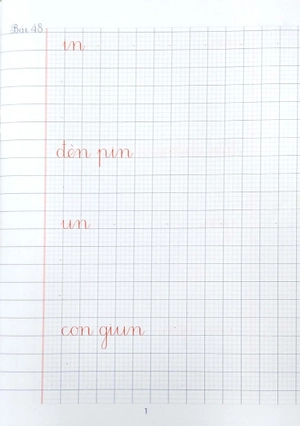 Bài 48:
in
đèn pin
un
con giun
1